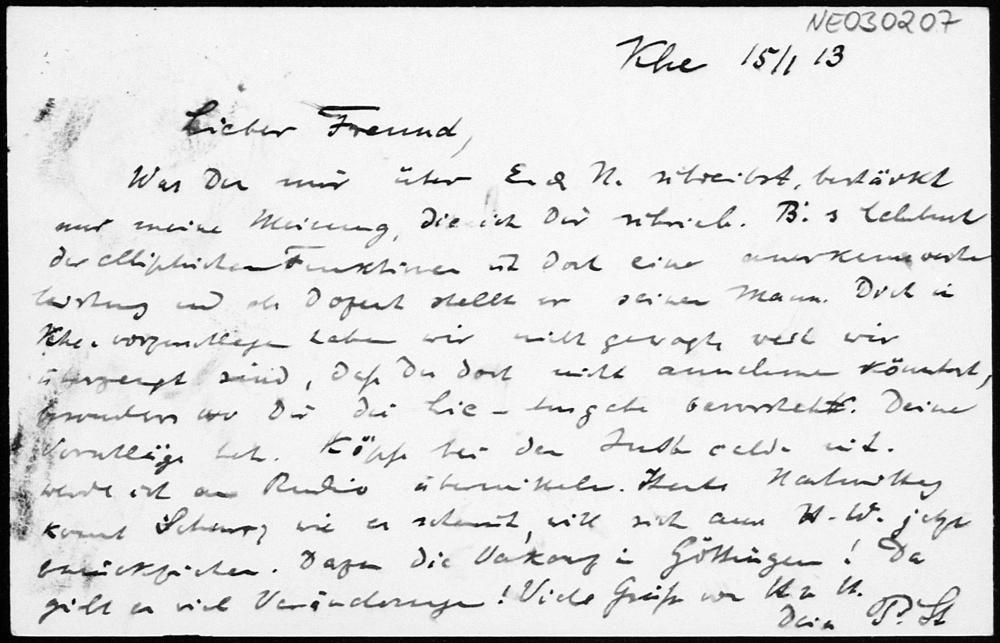 NE030207
Khe 15/1 13
Lieber Freund,
Was Du mir über E. & N. schreibst, bestärkt
nur meine Meinung, die ich Dir schrieb. B.'s Lehrbuch
der elliptischen Funktionen ist doch eine anerkennenswerte
Leistung und als Dozent stellt er seinen Mann. Dich in
Khe. vorzuschlagen haben wir nicht gewagt, weil wir
überzeugt sind, daß Du doch nicht annehmen könntest,
besonders wo Dir die Lie-Ausgabe bevorsteht. Deine
Vorschläge betr. Köpfe bei den
werde ich an Rudio übermitteln. Heute Nachmittag
kommt Schurz, wie es scheint, will sich auch H.-W. jetzt
zurückziehen. Dazu die Vakanz in Göttingen! Da
gibt es viel Veränderungen! Viele Grüße von H. z. H.
Dein P. St